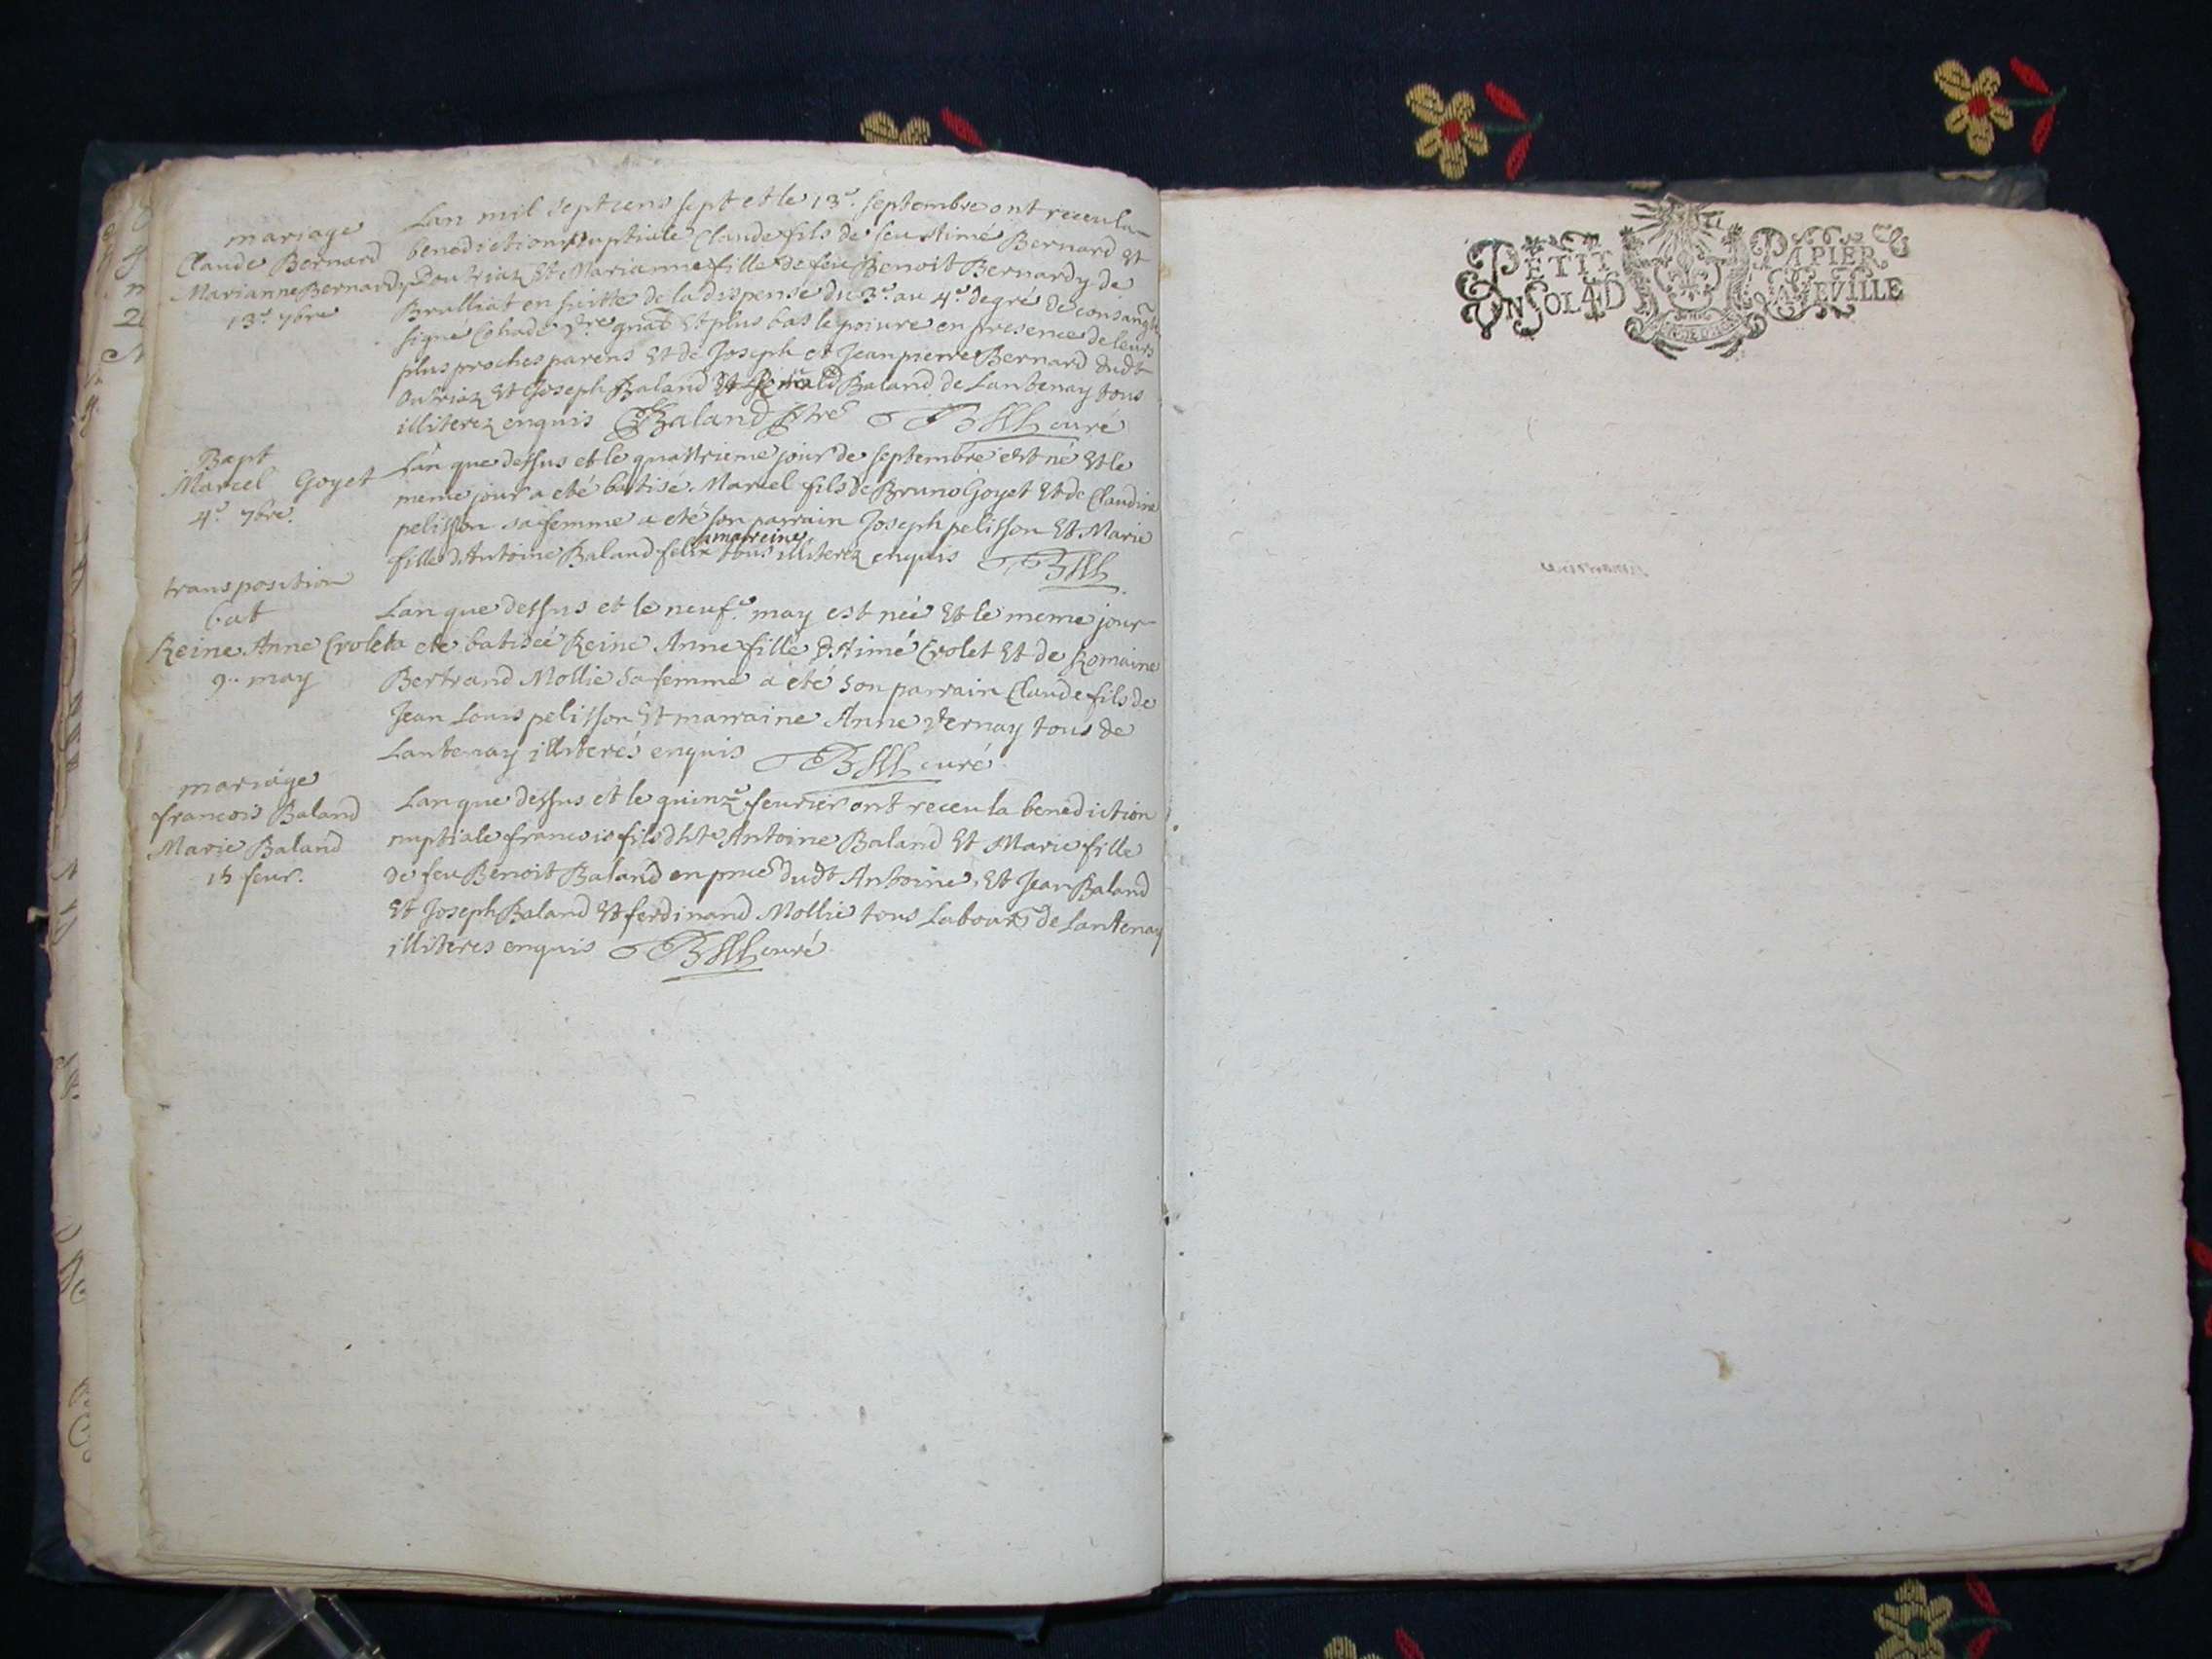 mariage
Claude Bernard
Marianne Bernardy
13.e 7bre
Lan mil sept cens sept et le 13.e septembre ont receu la
benediction nuptiale Claude fils de feu Aimé Bernard et
Doutriaz et Marianne fille de feu Benoit Bernardy de
Bralliat en suitte de la dispense du 3.e au 4.e degré de
signé Cohade et plus bas le poivre en presence de leurs
plus proches parens et de Joseph et Jean pierre Bernard dudt
Outriaz et Joseph Baland et Baland de Lantenay tous
illiterez enquis Baland curé
Bapt
Marcel Goyet
4.e 7bre.
Lan que dessus et le quattrieme jour de septembre est né et le
meme jour a eté batisé Marcel fils de Bruno Goyet et de Claudine
pelisson sa femme a eté son parrain Joseph pelisson et Marie
marreine
fille dAntoine Baland felix tous illiterez enquis
transposition
bat
Reine Anne Crolet
9.. may
Lan que dessus et le neuf.e may est neé et le meme jour
a eté batiseé Reine Anne fille dAimé Crolet et de Romaine
Bertrand Mollie sa femme a été son parrain Claude fils de
Jean Louis pelisson et marraine Anne Vernay tous de
Lantenay illiterés enquis curé
mariage
francois Baland
Marie Baland
15 feur.
Lan que dessus et le quinze feurier ont receu la benediction
nuptiale francois fils dht Antoine Baland et Marie fille
de feu Benoit Baland en pnce dudt Antoine, et Jean Baland
et Joseph Baland et ferdinand Mollie tous Labours de Lantenay
illiteres enquis curé
PETIT PAPIER
UN SOL 4D LA FEVILLE